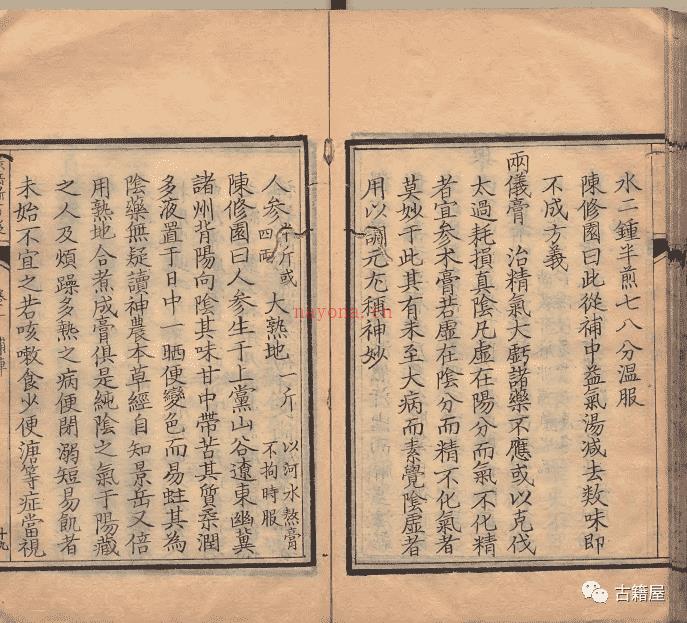 水二鍾半煎七八分溫服
陳修園曰此從補中益氣湯減去数味即
不成方義
兩儀膏　治精氣大虧諸藥不應或以克伐
太過耗損真陰凡虛在陽分而氣不化精
者宜参术膏若虛在陰分而精不化氣者
莫妙于此其有未至大病而素覺陰虛者
用以調元尤稱神妙
人参 半斤或四兩 大熟地 一斤 以河水熬膏不拘時服
陳修園曰人参生于上黨山谷遼東幽冀
諸州背陽向陰其味甘中帶苦其質柔潤
多液置于日中一晒便變色而易蛀其為
陰藥無疑讀神農本草經自知景岳又倍
用熟地合煮成膏俱是純陰之氣于陽藏
之人及煩躁多熱之病便閉溺短易飢者
未始不宜之若咳嗽食少便溏等症當視
十九
nayona.cn
古籍屋